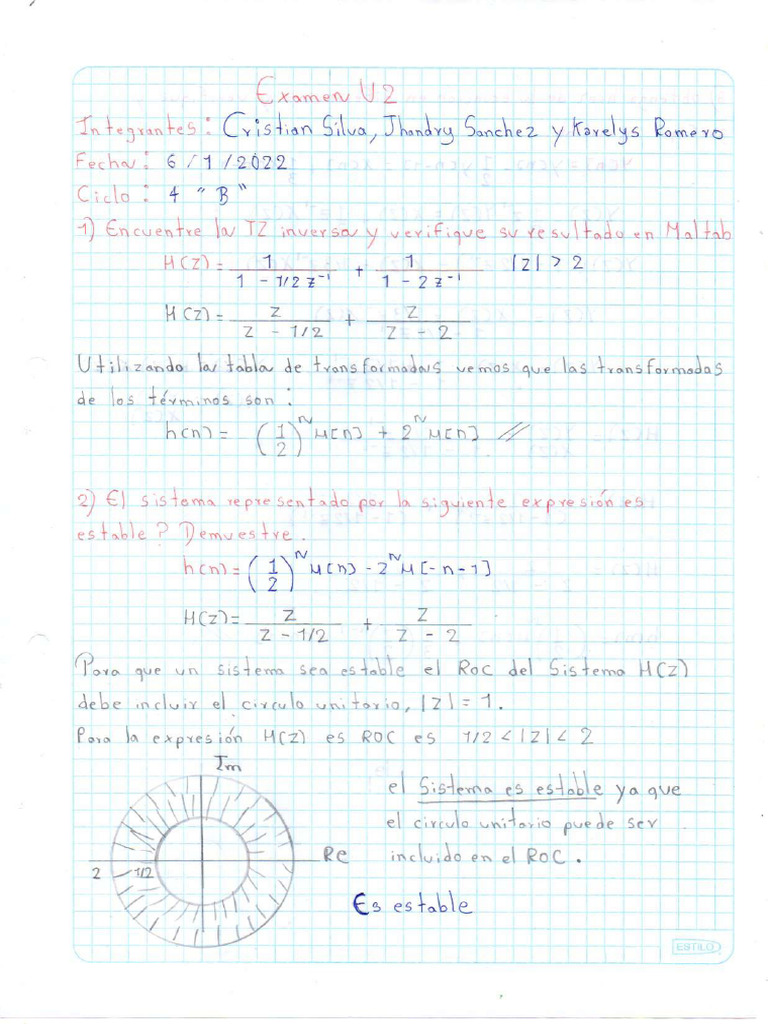 Examen U2
Integrantes: Cristian Silva, Jhandry Sanchez y Karelys Romero
Fecha: 6/1/2022
Ciclo: 4 "B"
1) Encuentre la TZ inversa y verifique su resultado en Maltab
H(z) = 1/(1 - 1/2 z⁻¹) + 1/(1 - 2 z⁻¹) |z| > 2
H(z) = z/(z - 1/2) + z/(z - 2)
Utilizando la tabla de transformadas vemos que las transformadas
de los términos son:
h(n) = (1/2)^n μ[n] + 2^n μ[n] //
2) El sistema representado por la siguiente expresión es
estable? Demuestre.
h(n) = (1/2)^n μ[n) - 2^n μ[-n-1]
H(z) = z/(z - 1/2) + z/(z - 2)
Para que un sistema sea estable el Roc del Sistema H(z)
debe incluir el circulo unitorio, |z| = 1.
Para la expresión H(z) es ROC es 1/2 < |z| < 2
Im
el Sistema es estable ya que
el circulo unitorio puede ser
Re incluido en el ROC.
2 1/2
Es estable
ESTILO